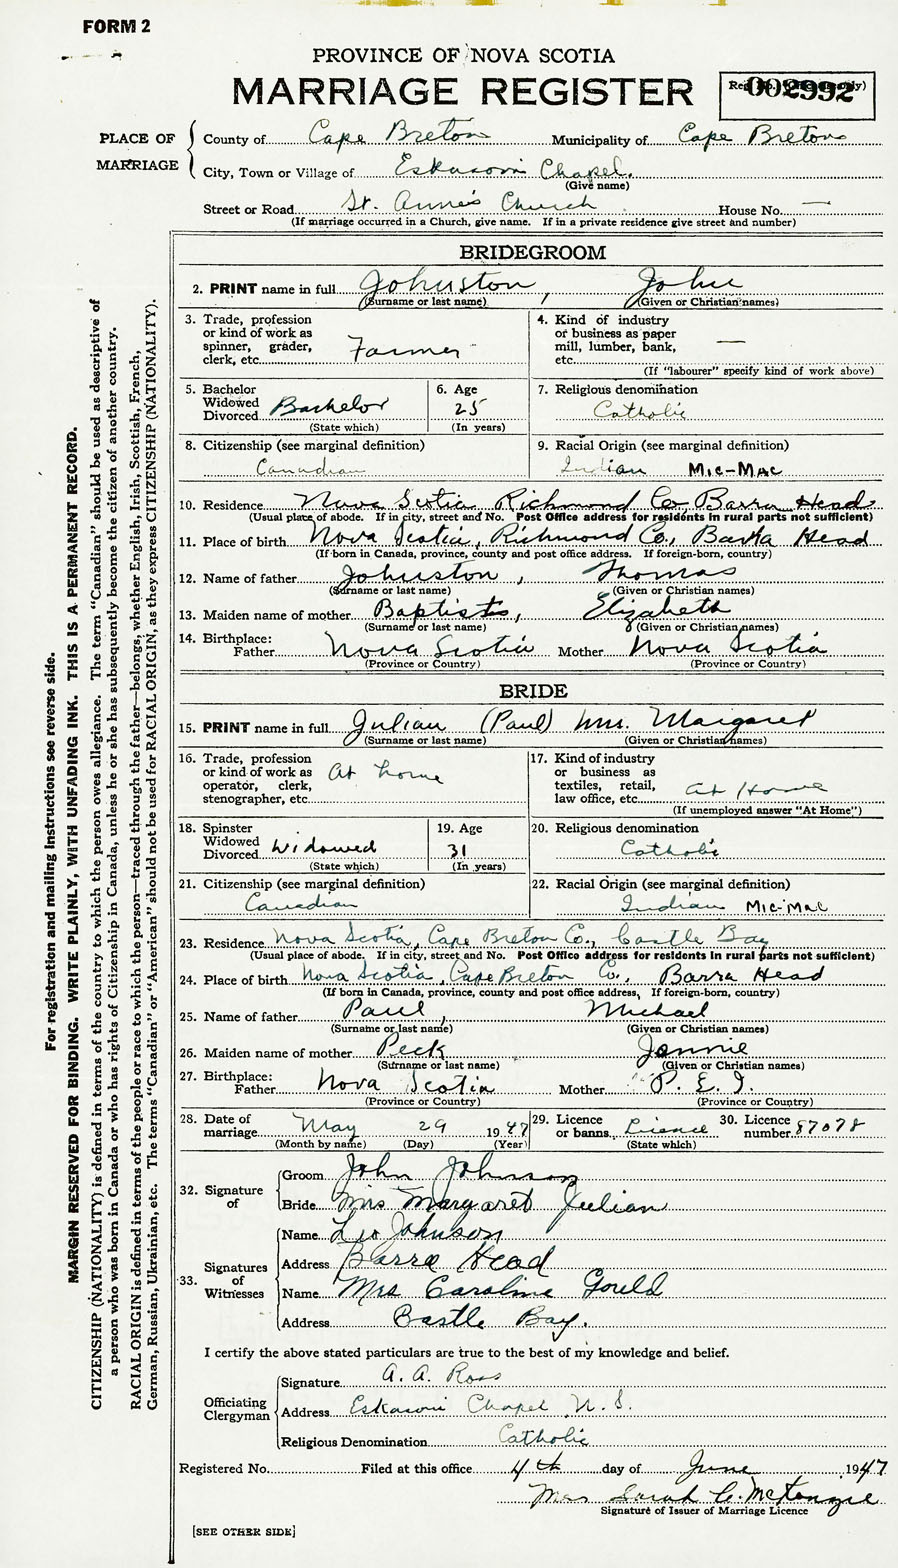 FORM 2
PROVINCE OF NOVA SCOTIA
MARRIAGE REGISTER
002992
PLACE OF MARRIAGE
County of Cape Breton Municipality of Cape Breton
City, Town or Village of Eskasoni Chapel.
(Give name)
Street or Road St. Anne's Church House No. —
(If marriage occurred in a Church, give name. If in a private residence give street and number)
BRIDEGROOM
2. PRINT name in full Johnston, John
(Surname or last name) (Given or Christian names)
3. Trade, profession or kind of work as spinner, grader, clerk, etc. Farmer
4. Kind of industry or business as paper mill, lumber, bank, etc. —
(If "labourer" specify kind of work above)
5. Bachelor Widowed Divorced Bachelor
(State which)
6. Age 25
(In years)
7. Religious denomination
Catholic
8. Citizenship (see marginal definition)
Canadian
9. Racial Origin (see marginal definition)
Indian Mic-Mac
10. Residence Nova Scotia Richmond Co Barra Head
(Usual place of abode. If in city, street and No. Post Office address for residents in rural parts not sufficient)
11. Place of birth Nova Scotia, Richmond Co., Barra Head
(If born in Canada, province, county and post office address. If foreign-born, country)
12. Name of father Johnston, Thomas
(Surname or last name) (Given or Christian names)
13. Maiden name of mother Baptiste, Elizabeth
(Surname or last name) (Given or Christian names)
14. Birthplace:
Father Nova Scotia Mother Nova Scotia
(Province or Country) (Province or Country)
BRIDE
15. PRINT name in full Julian (Paul) Mrs. Margaret
(Surname or last name) (Given or Christian names)
16. Trade, profession or kind of work as operator, clerk, stenographer, etc. At home
17. Kind of industry or business as textiles, retail, law office, etc. At Home
(If unemployed answer "At Home")
18. Spinster Widowed Divorced Widowed
(State which)
19. Age 31
(In years)
20. Religious denomination
Catholic
21. Citizenship (see marginal definition)
Canadian
22. Racial Origin (see marginal definition)
Indian Mic-Mac
23. Residence Nova Scotia, Cape Breton Co., Castle Bay
(Usual place of abode. If in city, street and No. Post Office address for residents in rural parts not sufficient)
24. Place of birth Nova Scotia, Cape Breton Co., Barra Head
(If born in Canada, province, county and post office address, If foreign-born, country)
25. Name of father Paul, Michael
(Surname or last name) (Given or Christian names)
26. Maiden name of mother Peck Jennie
(Surname or last name) (Given or Christian names)
27. Birthplace:
Father Nova Scotia Mother P. E. I.
(Province or Country) (Province or Country)
28. Date of marriage May 29 1947
(Month by name) (Day) (Year)
29. Licence or banns Licence
(State which)
30. Licence number 87078
32. Signature of
Groom John Johnson
Bride Mrs Margaret Julian
33. Signatures of Witnesses
Name Leo Johnson
Address Barra Head
Name Mrs Caroline Gould
Address Castle Bay.
I certify the above stated particulars are true to the best of my knowledge and belief.
Officiating Clergyman
Signature A. A. Ross
Address Eskasoni Chapel N. S.
Religious Denomination Catholic
Registered No. Filed at this office 4th day of June 1947
Mrs Sarah C. McKenzie
Signature of Issuer of Marriage Licence
[SEE OTHER SIDE]
For registration and mailing instructions see reverse side.
MARGIN RESERVED FOR BINDING. WRITE PLAINLY, WITH UNFADING INK. THIS IS A PERMANENT RECORD.
CITIZENSHIP (NATIONALITY) is defined in terms of the country to which the person owes allegiance. The term "Canadian" should be used as descriptive of
a person who was born in Canada or who has rights of Citizenship in Canada, unless he or she has subsequently become the citizen of another country.
RACIAL ORIGIN is defined in terms of the people or race to which the person—traced through the father—belongs, whether English, Irish, Scottish, French,
German, Russian, Ukrainian, etc. The terms "Canadian" or "American" should not be used for RACIAL ORIGIN, as they express CITIZENSHIP (NATIONALITY).